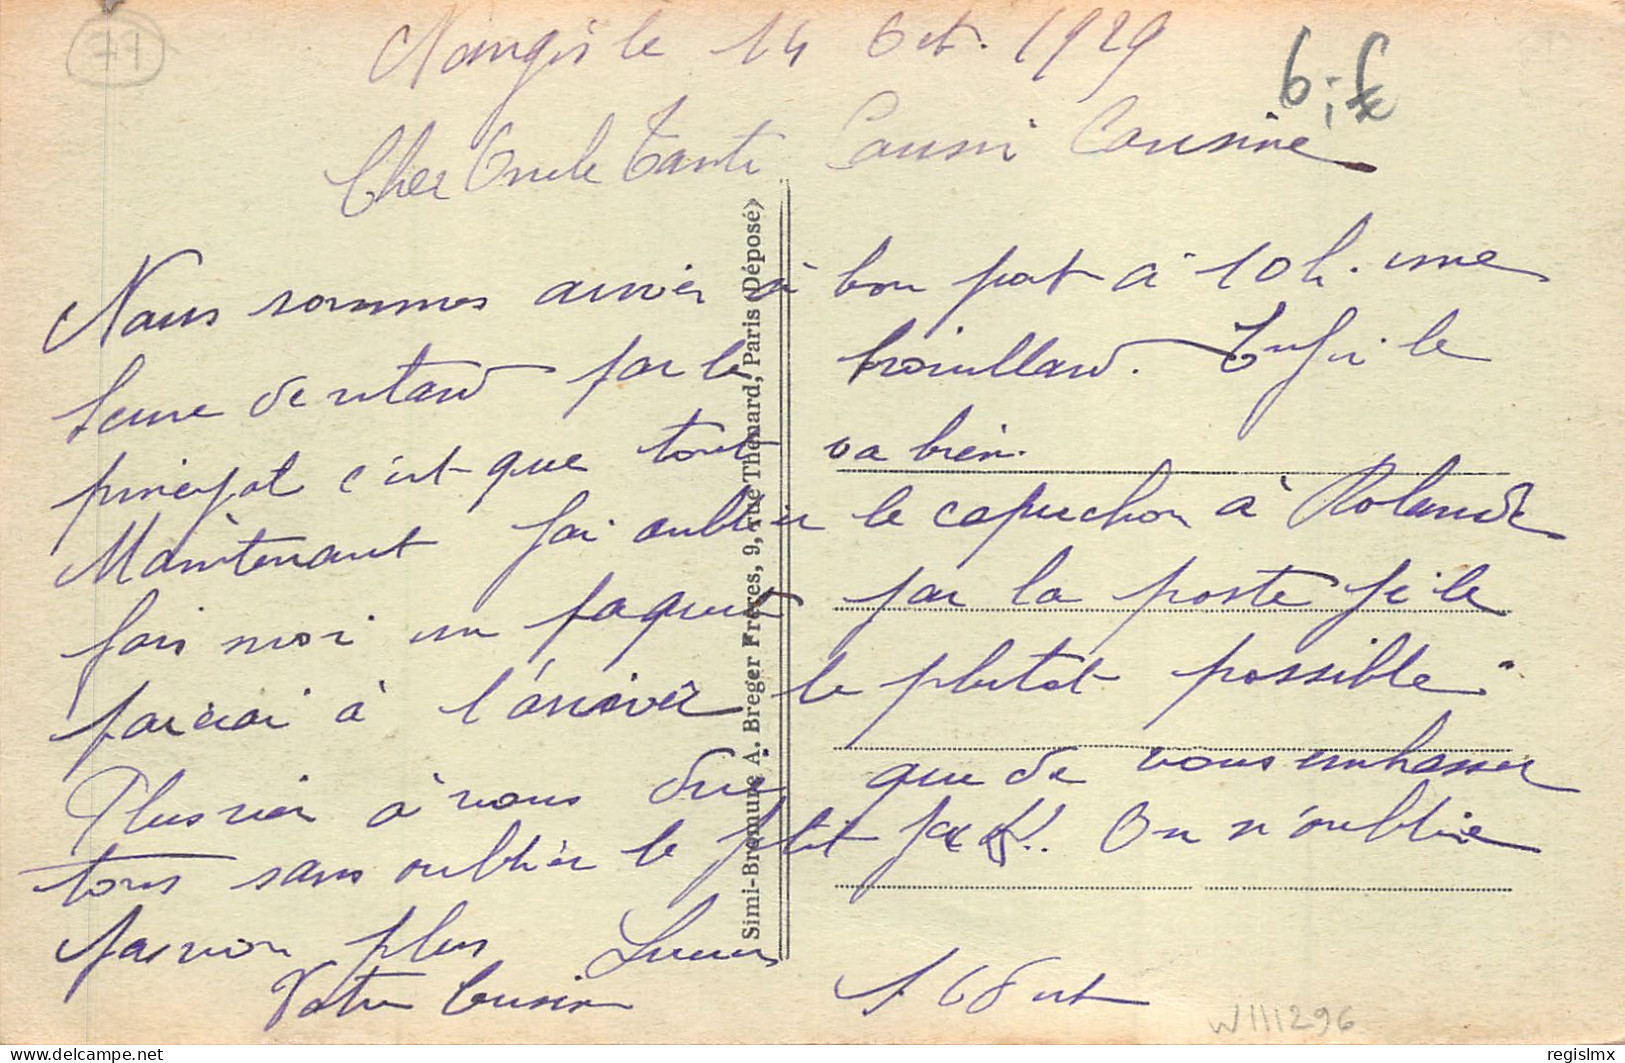 71
Nangis le 14 Oct. 1929
6,-f
Cher Oncle Tante Cousin Cousine
Nous sommes arriver à bon port à 10h. une
heure de retard par le brouillard. Enfin le
principal c'est que tout va bien.
Maintenant j'ai oublier le capuchon à Rolande
fais moi un paquet par la poste je le
paierai à l'arriver le plutot possible.
Plus rien à vous dire que de vous embrasser
tous sans oublier le petit On n'oublie
plus
Votre Cousin
Simi-Bromure A. Breger Frères, 9, rue Thénard, Paris (Déposé)
WIII296
delcampe.net
regislmx